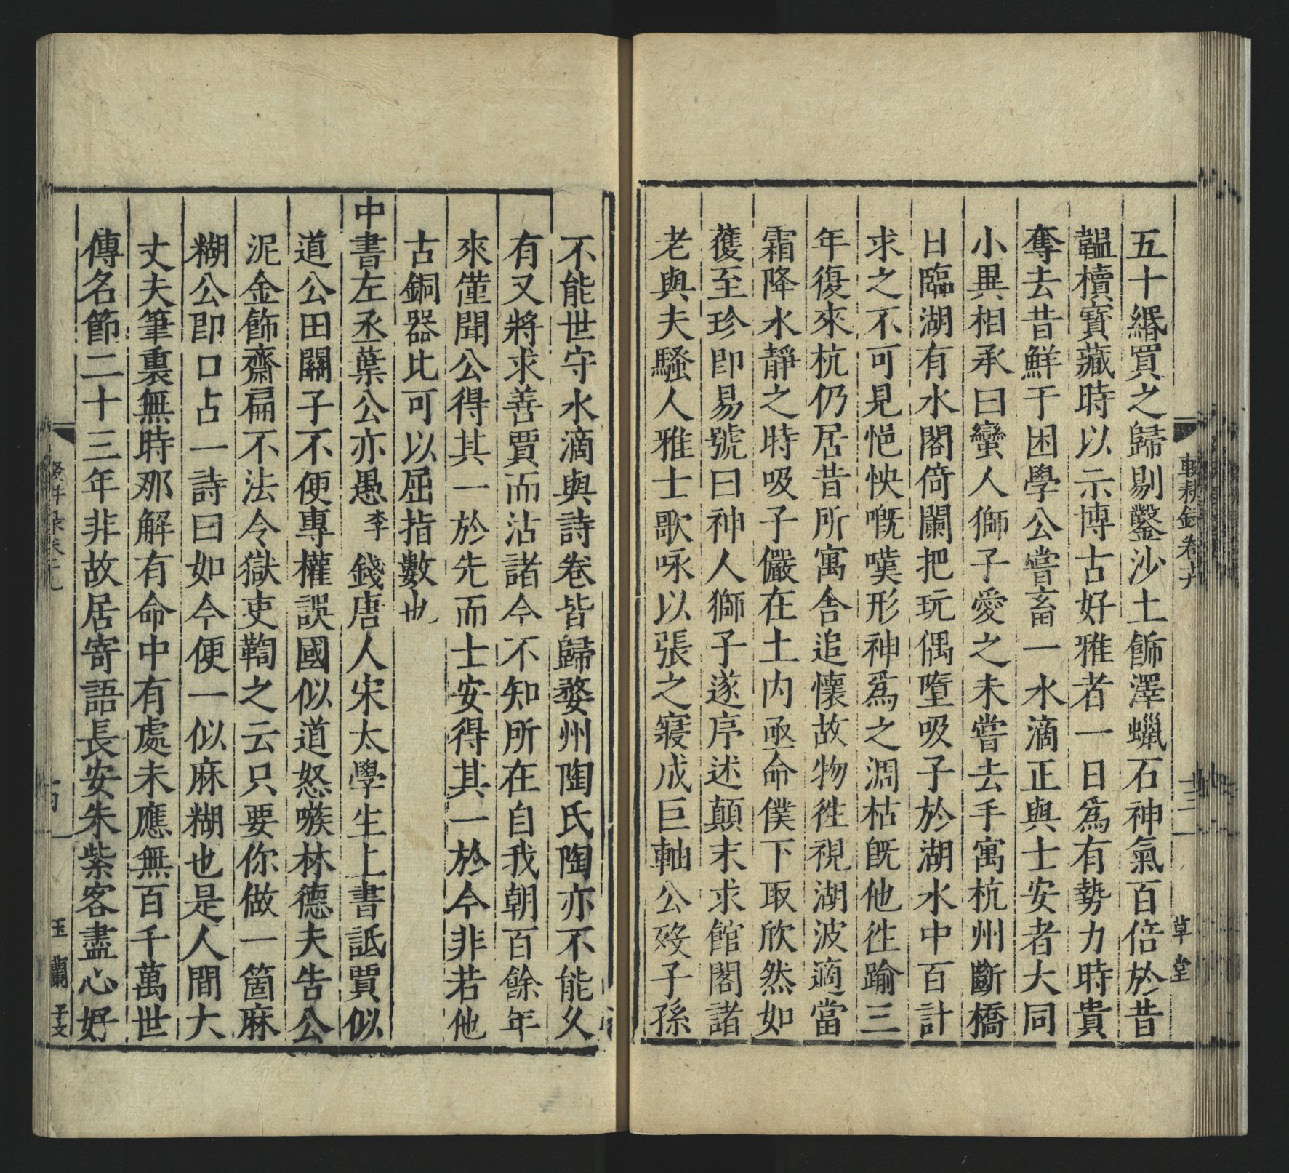 五十緡買之歸剔鑿沙土飾澤蠟石神氣百倍於昔
韞櫝寶藏時以示博古好雅者一日爲有勢力時貴
奪去昔鮮于困學公嘗畜一水滴正與士安者大同
小異相承曰蠻人獅子愛之未嘗去手寓杭州斷橋
日臨湖有水閣倚闌把玩偶墮吸子於湖水中百計
求之不可見悒怏嘅嘆形神爲之凋枯旣他徃踰三
年復來杭仍居昔所寓舎追懷故物徃視湖波適當
霜降水靜之時吸子儼在土内亟命僕下取欣然如
獲至珍即易號曰神人獅子遂序述顛末求館閣諸
老與夫騷人雅士歌咏以張之寖成巨軸公歿子孫
不能世守水滴與詩卷皆歸婺州陶氏陶亦不能久
有又將求善賈而沽諸今不知所在自我朝百餘年
來僅聞公得其一於先而士安得其一於今非若他
古銅器比可以屈指數也
中書左丞葉公亦愚李 錢唐人宋太學生上書詆賈似
道公田關子不便專權誤國似道怒嗾林德夫告公
泥金飾齋扁不法令獄吏鞫之云只要你做一箇麻
糊公即口占一詩曰如今便一似麻糊也是人間大
丈夫筆裏無時那解有命中有處未應無百千萬世
傳名節二十三年非故居寄語長安朱紫客盡心好
草堂
玉蘭